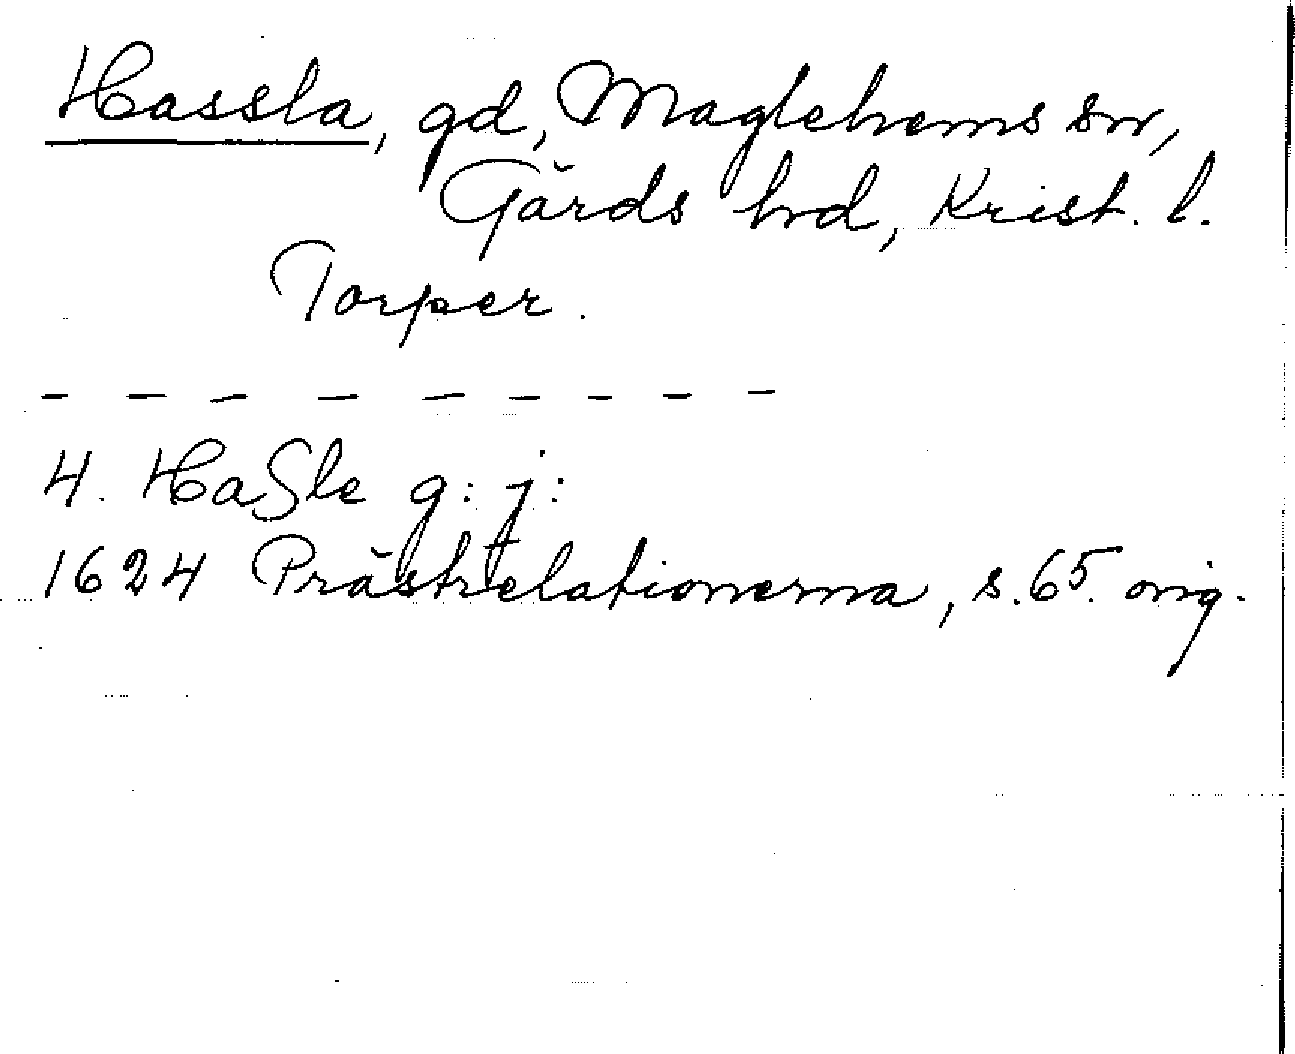 Hassla, gd, Maglehems sn,
Gärds hrd, Krist. l.
Torper.
- - - - - - - - -
4. HaSle g: j:
1624 Prästrelationerna, s. 65. orig.